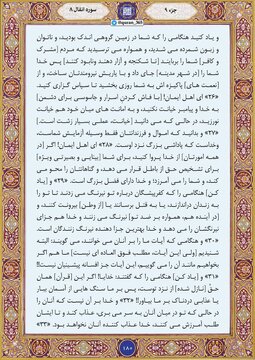 جزء ۹
@quran_361
سوره انفال ۸
و یاد کنید هنگامی را که شما در زمین گروهی اندک بودید، و ناتوان
و زبون شمرده می شدید، و همواره می ترسیدید که مردم [مشرک
و کافر] شما را بربایند [تا شکنجه و آزار دهند ونابود کنند] پس خدا
شما را [در شهر مدینه] جای داد و با یاریش نیرومندتان ساخت، و از
[نعمت های] پاکیزه اش به شما روزی بخشید تا سپاس گزاری کنید.
«۲۶» ای اهل ایمان! [با فاش کردن اسرار و جاسوسی برای دشمن]
به خدا و پیامبر خیانت نکنید، و به امانت های میان خود هم خیانت
نورزید، در حالی که می دانید [خیانت، عملی بسیار زشت است.]
«۲۷» و بدانید که اموال و فرزندانتان فقط وسیله آزمایش شماست،
وخداست که پاداشی بزرگ نزد اوست. «۲۸» ای اهل ایمان! اگر [در
همه امورتان] از خدا پروا کنید، برای شما [بینایی و بصیرتی ویژه]
برای تشخیص حق از باطل قرار می دهد، و گناهانتان را محو می
کند، و شما را می آمرزد؛ و خدا دارای فضل بزرگ است. «۲۹» و [یاد
کن] هنگامی را که کفرپیشگان درباره تو نیرنگ می زدند تا تو را
به زندان دراندازند، یا به قتل برسانند یا [از وطن] بیرونت کنند، و
[در آینده هم، همواره بر ضد تو] نیرنگ می زنند و خدا هم جزای
نیرنگشان را می دهد و خدا بهترین جزا دهنده نیرنگ زنندگان است.
«۳۰» و هنگامی که آیات ما را بر آنان می خوانند، می گویند: البته
شنیدیم [ولی این آیات، مطلب فوق العاده ای نیست] ما هم اگر
بخواهیم مانند آن را می گوییم، این آیات جز افسانه پیشینیان نیست!!
«۳۱» و [یاد کن] هنگامی را که گفتند: خدایا! اگر این [قرآن] همان
حقِّ [نازل شده] از نزد توست، پس بر ما سنگ هایی از آسمان ببار
یا عذابی دردناک بر ما بیاور!! «۳۲» و خدا بر آن نیست که آنان را
در حالی که تو در میان آنان به سر می بری، عذاب کند و تا ایشان
طلب آمرزش می کنند، خدا عذاب کننده آنان نخواهد بود. «۳۳»
۱۸۰